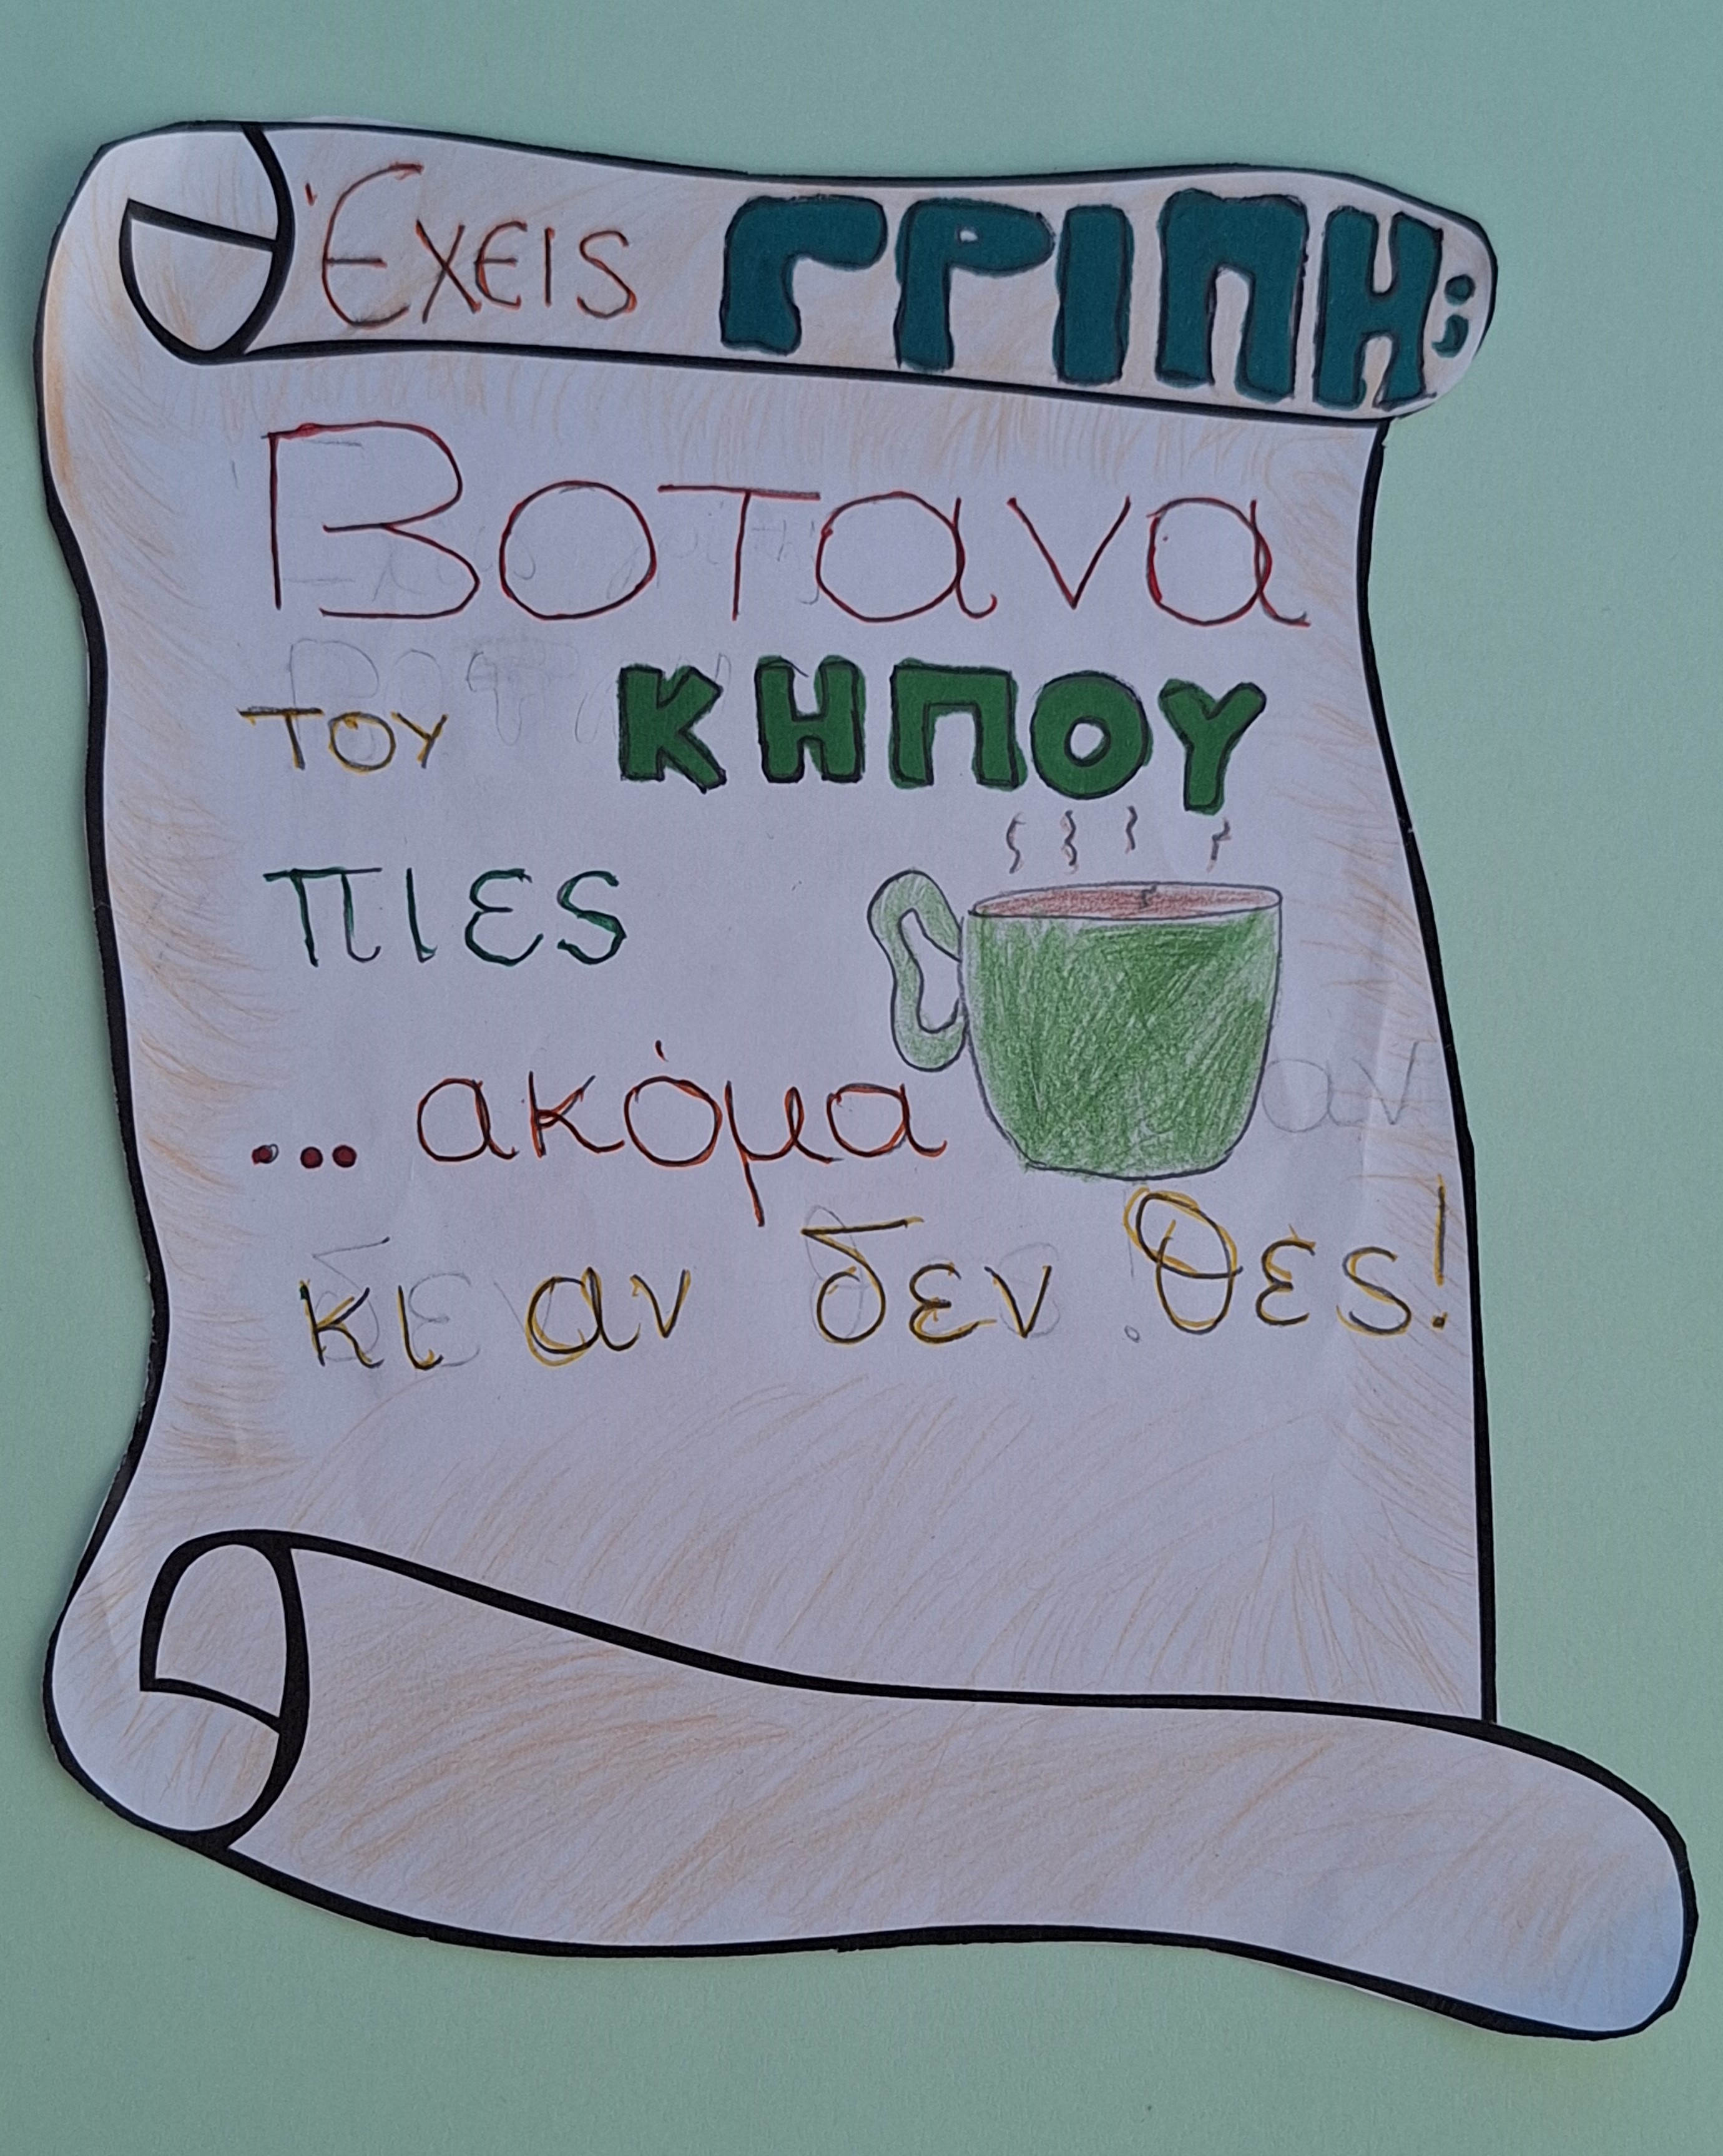 Έχεις ΓΡΙΠΗ;
Βοτανα
του ΚΗΠΟΥ
πιες
... ακόμα
κι αν δεν θές!